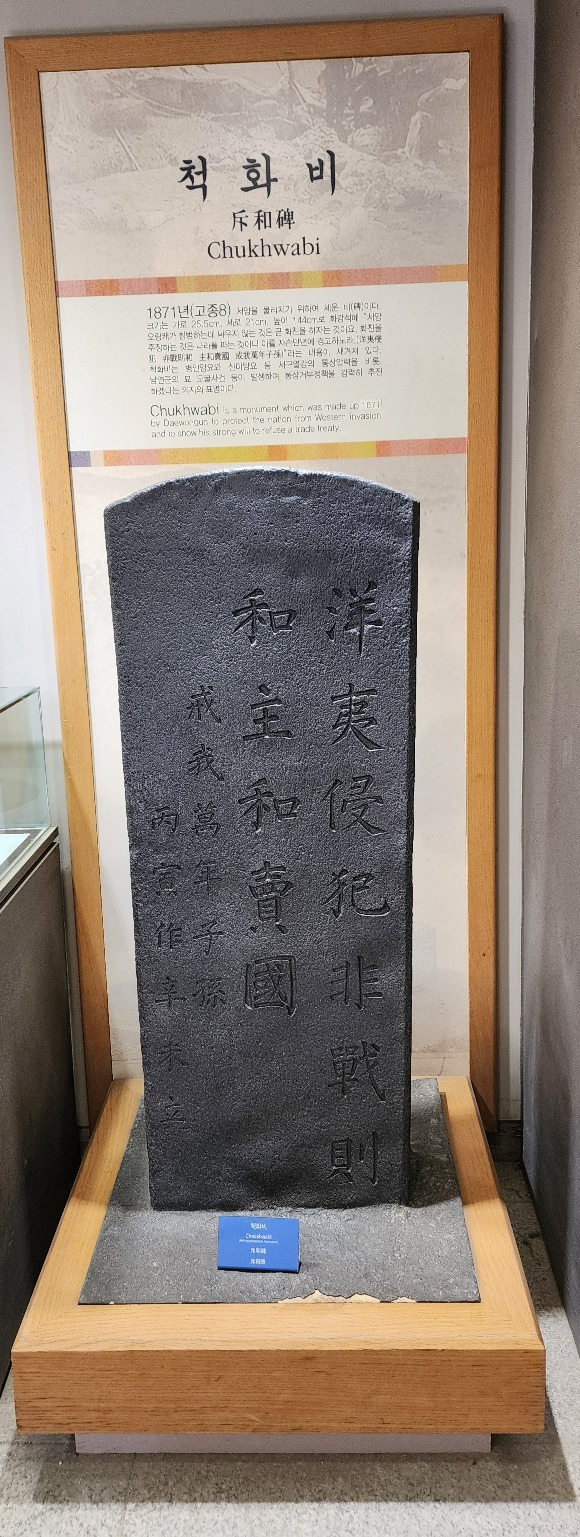 척 화 비
斥和碑
Chukhwabi
1871년(고종8) 서양을 물리치기 위하여 세운 비(碑)이다.
크기는 가로 25.5cm, 세로 21cm, 높이 144cm로 화강석에 "서양
오랑캐가 침범하는데 싸우지 않는 것은 곧 화친을 하자는 것이요, 화친을
주장하는 것은 나라를 파는 것이니 이를 자손만년에 경고하노라.(洋夷侵
犯 非戰則和 主和賣國 戒我萬年子孫)"라는 내용이 새겨져 있다.
척화비는 병인양요와 신미양요 등 서구열강의 통상압력을 비롯,
남연군의 묘 도굴사건 등이 발생하여 통상거부정책을 강력히 추진
하겠다는 의지의 표명이다.
Chukhwabi is a monument which was made up 1871
by Daewongun to protect the nation from Western invasion
and to show his strong will to refuse a trade treaty.
洋夷侵犯非戰則
和主和賣國
戒我萬年子孫
丙寅作辛未立
척화비
Cheokhwabi
斥和碑